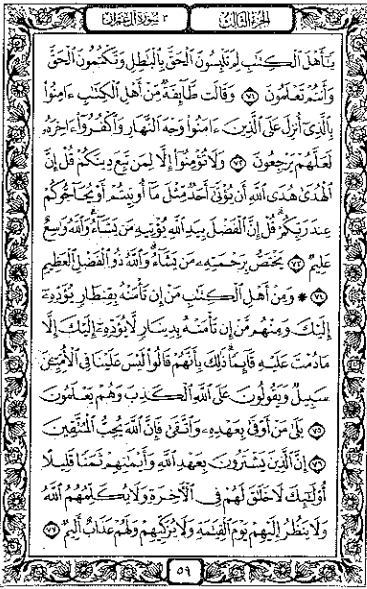 الجزء الثالث ٣ سورة آل عمران
يَٰٓأَهْلَ ٱلْكِتَٰبِ لِمَ تَلْبِسُونَ ٱلْحَقَّ بِٱلْبَٰطِلِ وَتَكْتُمُونَ ٱلْحَقَّ
وَأَنتُمْ تَعْلَمُونَ ٧١ وَقَالَت طَّآئِفَةٌ مِّنْ أَهْلِ ٱلْكِتَٰبِ ءَامِنُوا۟
بِٱلَّذِىٓ أُنزِلَ عَلَى ٱلَّذِينَ ءَامَنُوا۟ وَجْهَ ٱلنَّهَارِ وَٱكْفُرُوٓا۟ ءَاخِرَهُۥ
لَعَلَّهُمْ يَرْجِعُونَ ٧٢ وَلَا تُؤْمِنُوٓا۟ إِلَّا لِمَن تَبِعَ دِينَكُمْ قُلْ إِنَّ
ٱلْهُدَىٰ هُدَى ٱللَّهِ أَن يُؤْتَىٰٓ أَحَدٌ مِّثْلَ مَآ أُوتِيتُمْ أَوْ يُحَآجُّوكُمْ
عِندَ رَبِّكُمْ ۗ قُلْ إِنَّ ٱلْفَضْلَ بِيَدِ ٱللَّهِ يُؤْتِيهِ مَن يَشَآءُ ۗ وَٱللَّهُ وَٰسِعٌ
عَلِيمٌ ٧٣ يَخْتَصُّ بِرَحْمَتِهِۦ مَن يَشَآءُ ۗ وَٱللَّهُ ذُو ٱلْفَضْلِ ٱلْعَظِيمِ
٧٤ ۞ وَمِنْ أَهْلِ ٱلْكِتَٰبِ مَنْ إِن تَأْمَنْهُ بِقِنطَارٍ يُؤَدِّهِۦٓ
إِلَيْكَ وَمِنْهُم مَّنْ إِن تَأْمَنْهُ بِدِينَارٍ لَّا يُؤَدِّهِۦٓ إِلَيْكَ إِلَّا
مَا دُمْتَ عَلَيْهِ قَآئِمًا ۗ ذَٰلِكَ بِأَنَّهُمْ قَالُوا۟ لَيْسَ عَلَيْنَا فِى ٱلْأُمِّيِّـۧنَ
سَبِيلٌ وَيَقُولُونَ عَلَى ٱللَّهِ ٱلْكَذِبَ وَهُمْ يَعْلَمُونَ
٧٥ بَلَىٰ مَنْ أَوْفَىٰ بِعَهْدِهِۦ وَٱتَّقَىٰ فَإِنَّ ٱللَّهَ يُحِبُّ ٱلْمُتَّقِينَ
٧٦ إِنَّ ٱلَّذِينَ يَشْتَرُونَ بِعَهْدِ ٱللَّهِ وَأَيْمَٰنِهِمْ ثَمَنًا قَلِيلًا
أُو۟لَٰٓئِكَ لَا خَلَٰقَ لَهُمْ فِى ٱلْءَاخِرَةِ وَلَا يُكَلِّمُهُمُ ٱللَّهُ
وَلَا يَنظُرُ إِلَيْهِمْ يَوْمَ ٱلْقِيَٰمَةِ وَلَا يُزَكِّيهِمْ وَلَهُمْ عَذَابٌ أَلِيمٌ ٧٧
٥٩